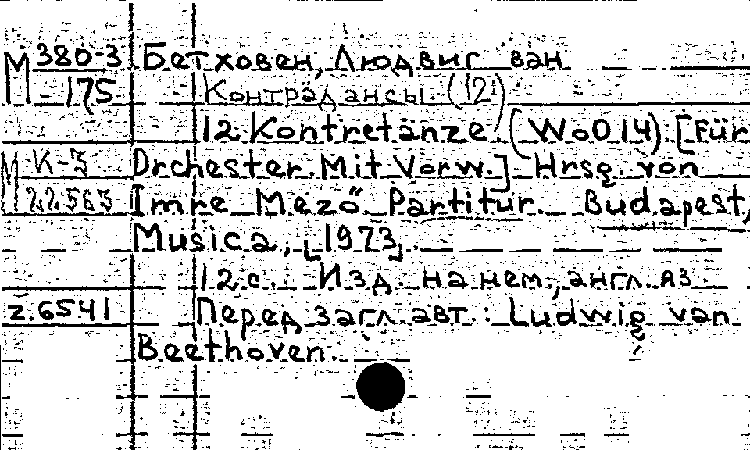 М 380-3 Бетховен, Людвиг ван
-175 Контрадансы (12)
12 Kontretänze (WoO 14) [Für
М К-3 Orchester. Mit Vorw.] Hrsg. von
22563 Imre Mezö Partitur. Budapest,
Musica, [1973].
12 с. Изд. на нем., англ. яз.
z.6541 Перед загл. авт.: Ludwig van
Beethoven.